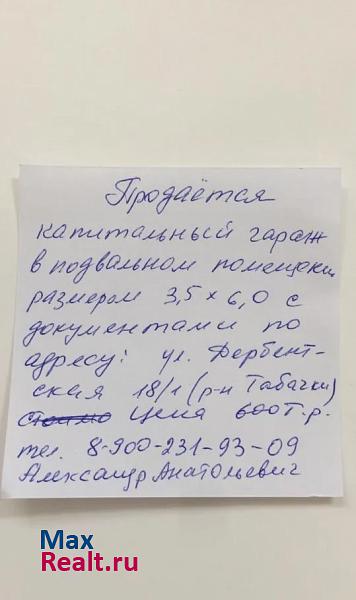 Продаётся
капитальный гараж
в подвальном помещении
размером 3,5 х 6,0 с
документами по
адресу: ул. Дербент-
ская 18/1 (р-н Табачки)
Цена 600 т.р.
тел. 8-900-231-93-09
Александр Анатольевич
Max
Realt.ru